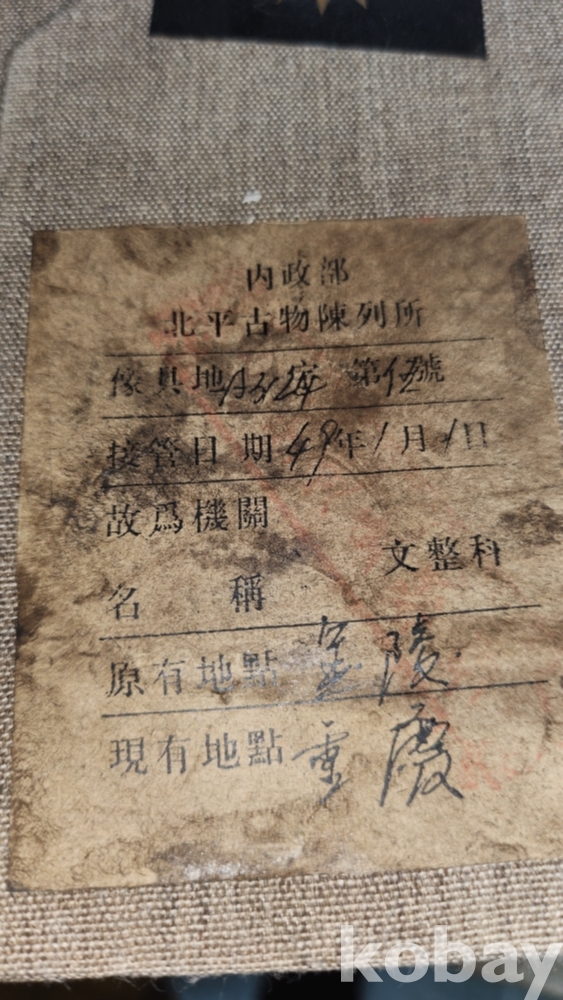 内政部
北平古物陳列所
傢具地 第伍號
接管日期49年1月1日
故爲機關
文整科
名稱
原有地點 陵
現有地點重慶
kobay